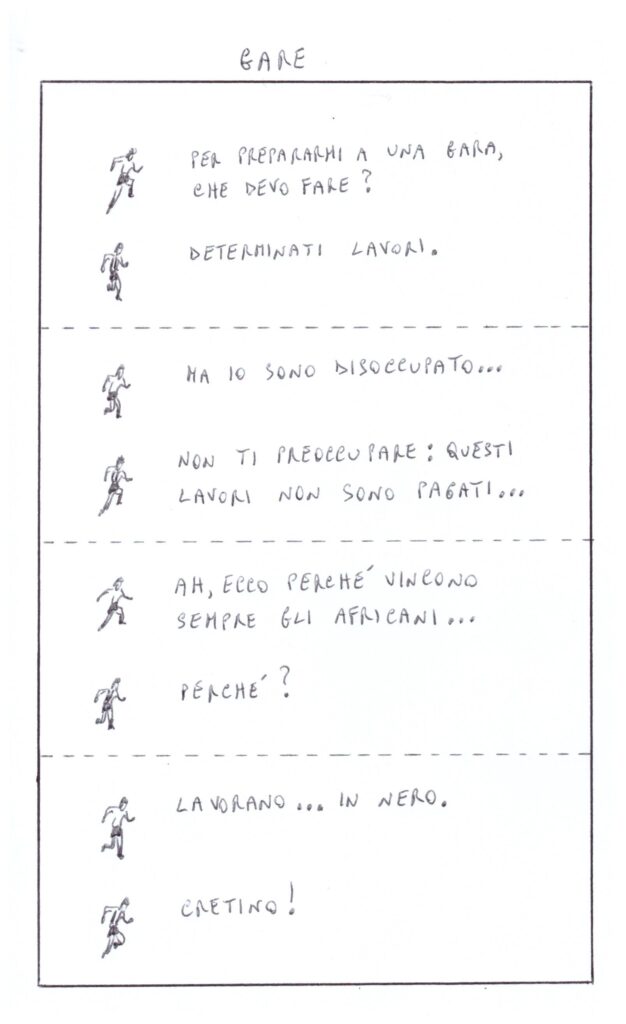 GARE
PER PREPARARMI A UNA GARA,
CHE DEVO FARE?
DETERMINATI LAVORI.
MA IO SONO DISOCCUPATO...
NON TI PREOCCUPARE: QUESTI
LAVORI NON SONO PAGATI...
AH, ECCO PERCHÉ VINCONO
SEMPRE GLI AFRICANI...
PERCHÉ?
LAVORANO... IN NERO.
CRETINO!